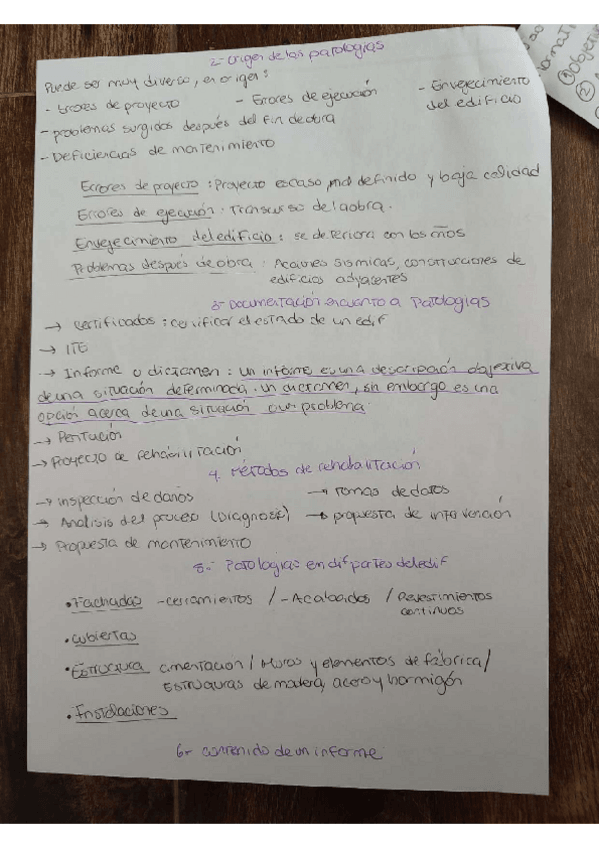 2- origen de las patologías
Puede ser muy diverso, en origen:
- Errores de proyecto - Errores de ejecución - Envejecimiento del edificio
- problemas surgidos después del fin de obra
- Deficiencias de mantenimiento
Errores de proyecto: Proyecto escaso, mal definido y baja calidad
Errores de ejecución: Transcurso de la obra.
Envejecimiento del edificio: se deteriora con los años
Problemas después de obra: Acciones sísmicas, construcciones de
edificios adyacentes
3- Documentación en cuanto a Patologías
→ Certificados: certificar el estado de un edif
→ ITE
→ Informe o dictamen: un informe es una descripción objetiva
de una situación determinada. un dictamen, sin embargo es una
opción acerca de una situación o un problema.
→ Peritución
→ Proyecto de rehabilitación
4. Métodos de rehabilitación
→ inspección de daños → Tomas de datos
→ Análisis del proceso (Diagnosis) → propuesta de intervención
→ Propuesta de mantenimiento
5.- Patologías en dif partes del edif
• Fachadas - cerramientos / - Acabados / Revestimientos
continuos
• Cubiertas
• Estructura cimentación / Muros y elementos de fábrica /
Estructuras de madera, acero y hormigón
• Instalaciones
6- contenido de un informe